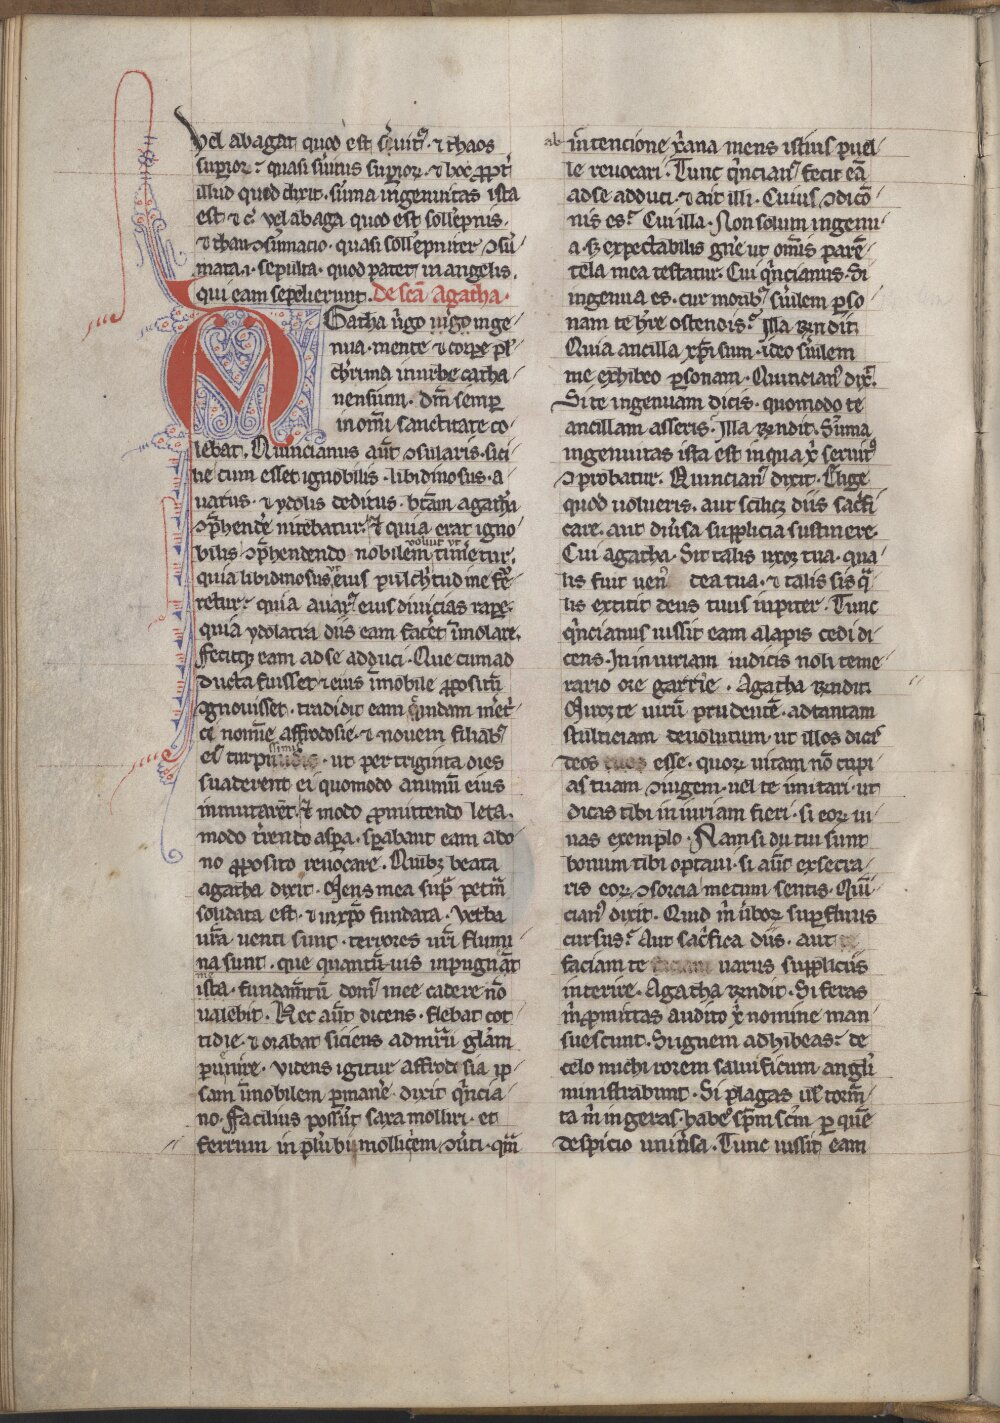 vel abagat quod est s̄uit᷒. ⁊ thaos
superior: quasi s̄uitus superior. ⁊ hoc ꝓpt̄
illud quod dixit. sūma ingenuitas ista
est ⁊ c̄ vel abaga quod est sollēpnis.
⁊ thau ↄsūmacio. quasi sollēpniter ↄsū
mata .i. sepulta. quod patet in angelis.
qui eam sepelierunt. De scā Agatha.
Gatha v̄go v̄go inge
nua. mente ⁊ corpe pl̄
ch̄rima in urbe catha
nensium. dm̄ semꝑ
in om̄i sanctitate co
lebat. Quincianus aūt ↄsularis sici
lie cum esset ignobilis. libidinosus. a
uarus. ⁊ ydolis deditus. bt̄am agatha
ↄp̄hendere nitebatur. et quia erat igno
bilis ↄp̄hendendo nobilem timeretur.
voluit vt
quia libidinosus eius pulchritudine fr̄e
retur: quia auar᷒ eius diuicias raꝑe.
quia ydolatra diis eam facēt īmolare.
fecitqꝫ eam ad se adduci. Que cum ad
ducta fuisset ⁊ eius īmobile ꝓpositū
ↄgnouisset. tradidit eam cuidam m̄et
ci noīe affrodosie. ⁊ nouem filiab᷒
ei᷒ turpissimis. ut per triginta dies
suaderent ei quomodo animū eius
inmutarēt. et modo ꝓmittendo leta.
modo t̄rendo aspera. sperabant eam a bo
no ꝓposito reuocare. Quibꝫ beata
agatha dixit. Mens mea suꝑ petrā
solidata est. ⁊ in xp̄o fundata. Verba
ur̄a uenti sunt. terrores ur̄i flumi
na sunt. que quantū uis inpugnāt
ista. fundamētū dom᷒ mee cadere nō
ualebit. Nec aūt dicens. flebat cot
tidie. ⁊ orabat siciens ad mr̄ii gl̄am
ꝑuenire. videns igitur affrodisia ip
sam īmobilem ꝑmanē. dixit q̄ncia
no. Facilius possūt saxa molliri. et
ferrum in plūbi mollitiem ↄuerti. qm̄
ab intencione xr̄ana mens istius puel
le reuocari. Tunc q̄ncian᷒ fecit eā
ad se adduci. ⁊ ait illi. Cuius ↄdicō
nis es? Cui illa. Non solum ingenu
a. sꝫ expectabilis gn̄e ut om̄is parē
tela mea testatur. Cui q̄ncianus. Si
ingenua es. cur morib᷒ s̄uilem ꝑso
nam te h̄re ostendis? Illa rn̄dit.
Quia ancilla xp̄i sum. ideo s̄uilem
me exhibeo ꝑsonam. Quincian᷒ dix̄.
Si te ingenuam dicis. quomodo te
ancillam asseris? Illa rn̄dit. Sūma
ingenuitas ista est in qua x̄ seruit᷒
ↄprobatur. Quincian᷒ dixit. Elige
quod uolueris. aut scilicꝫ diis sacrifi
care. aut diuersa supplicia sustinere.
Cui agatha. Sit talis uxor tua. qua
lis fuit uen᷒ dea tua. ⁊ talis sis q̄
lis extitit deus tuus iupiter. Tunc
q̄ncianus iussit eam alapis cedi di
cens. In iniuriam iudicis noli teme
rario ore garrīe. Agatha rn̄dit.
Miror te uirū prudentē. ad tantam
stulticiam deuolutum. ut illos dicis
deos tuos esse. quorum uitam nō cupi
as tuam ↄiugem. uel te imitari. ut
dicas tibi iniuriam fieri. si eorum ui
uas exemplo. Nam si dii tui sunt
bonum tibi optaui. si aūt exsecra
ris eorum ↄsorcia mecum sentis. Quī
cian᷒ dixit. Quid m̄ uerborum superfluus
cursus? Aut sacrifica diis. aut
faciam te variis suppliciis
interire. Agatha rn̄dit. Si feras
m̄ ꝓmittas audito x̄ nomine man
suescunt. Si ignem adhibeas: de
celo michi rorem saluificum angli
ministrabunt. Si plagas ul̄ torm̄
ta m̄ ingeras. habeo sp̄m scm̄ ꝑ quē
despicio uniu̇sa. Tunc iussit eam